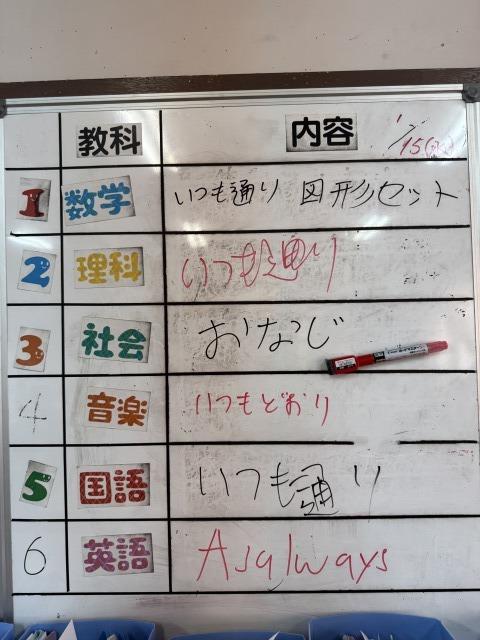 教科 内容 1/15(火)
1 数学 いつも通り 図形セット
2 理科 いつも通り
3 社会 おなじ
4 音楽 いつもどおり
5 国語 いつも通り
6 英語 As always